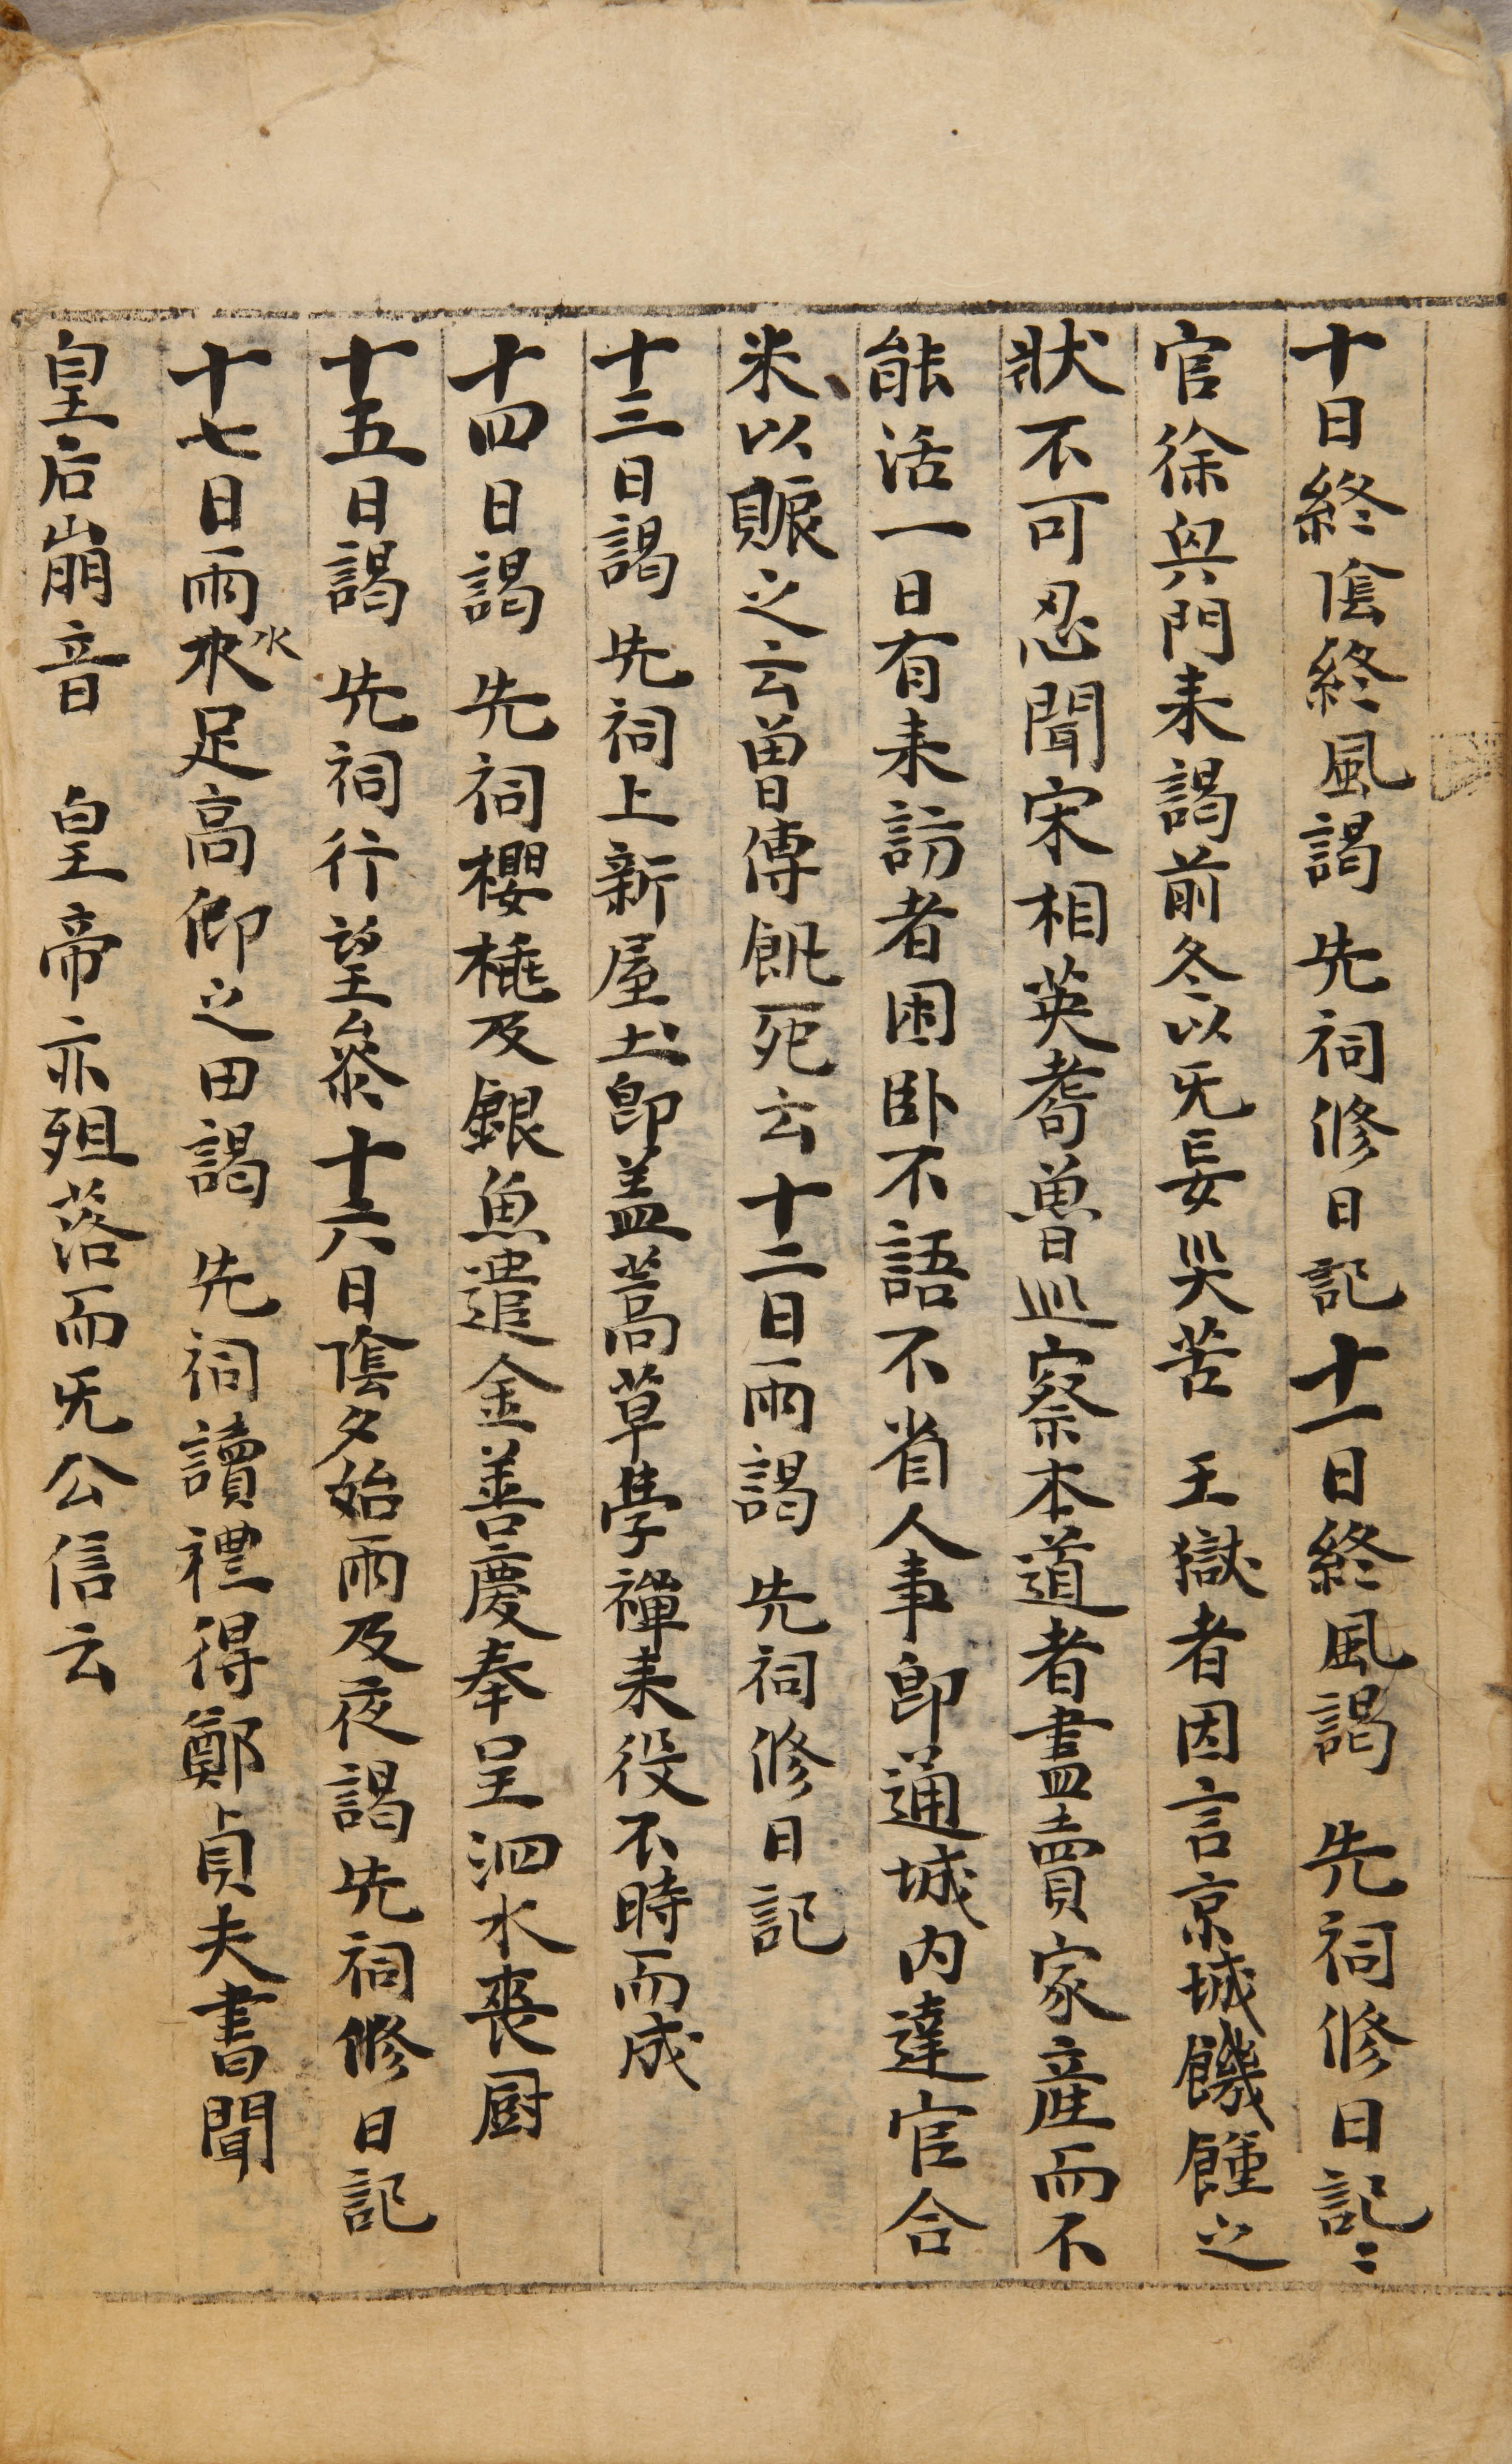 十日終陰終風謁 先祠修日記十一日終風謁 先祠修日記〻
官徐與門来謁前冬以旡妄災苦 王獄者因言京城饑饉之
狀不可忍聞宋相英耈曽巡察本道者盡賣家産而不
能活一日有来訪者困卧不語不省人事即通城内達官合
米以賑之云曽傳飢死云十二日雨謁 先祠修日記
十三日謁 先祠上新屋土即盖蒿草學禪来役不時而成
十四日謁 先祠櫻桃及銀魚遣金善慶奉呈泗水喪厨
十五日謁 先祠行望叅十六日陰夕始雨及夜謁先祠修日記
十七日雨水足高仰之田謁 先祠讀禮得鄭貞夫書聞
皇后崩音 皇帝亦殂落而旡公信云